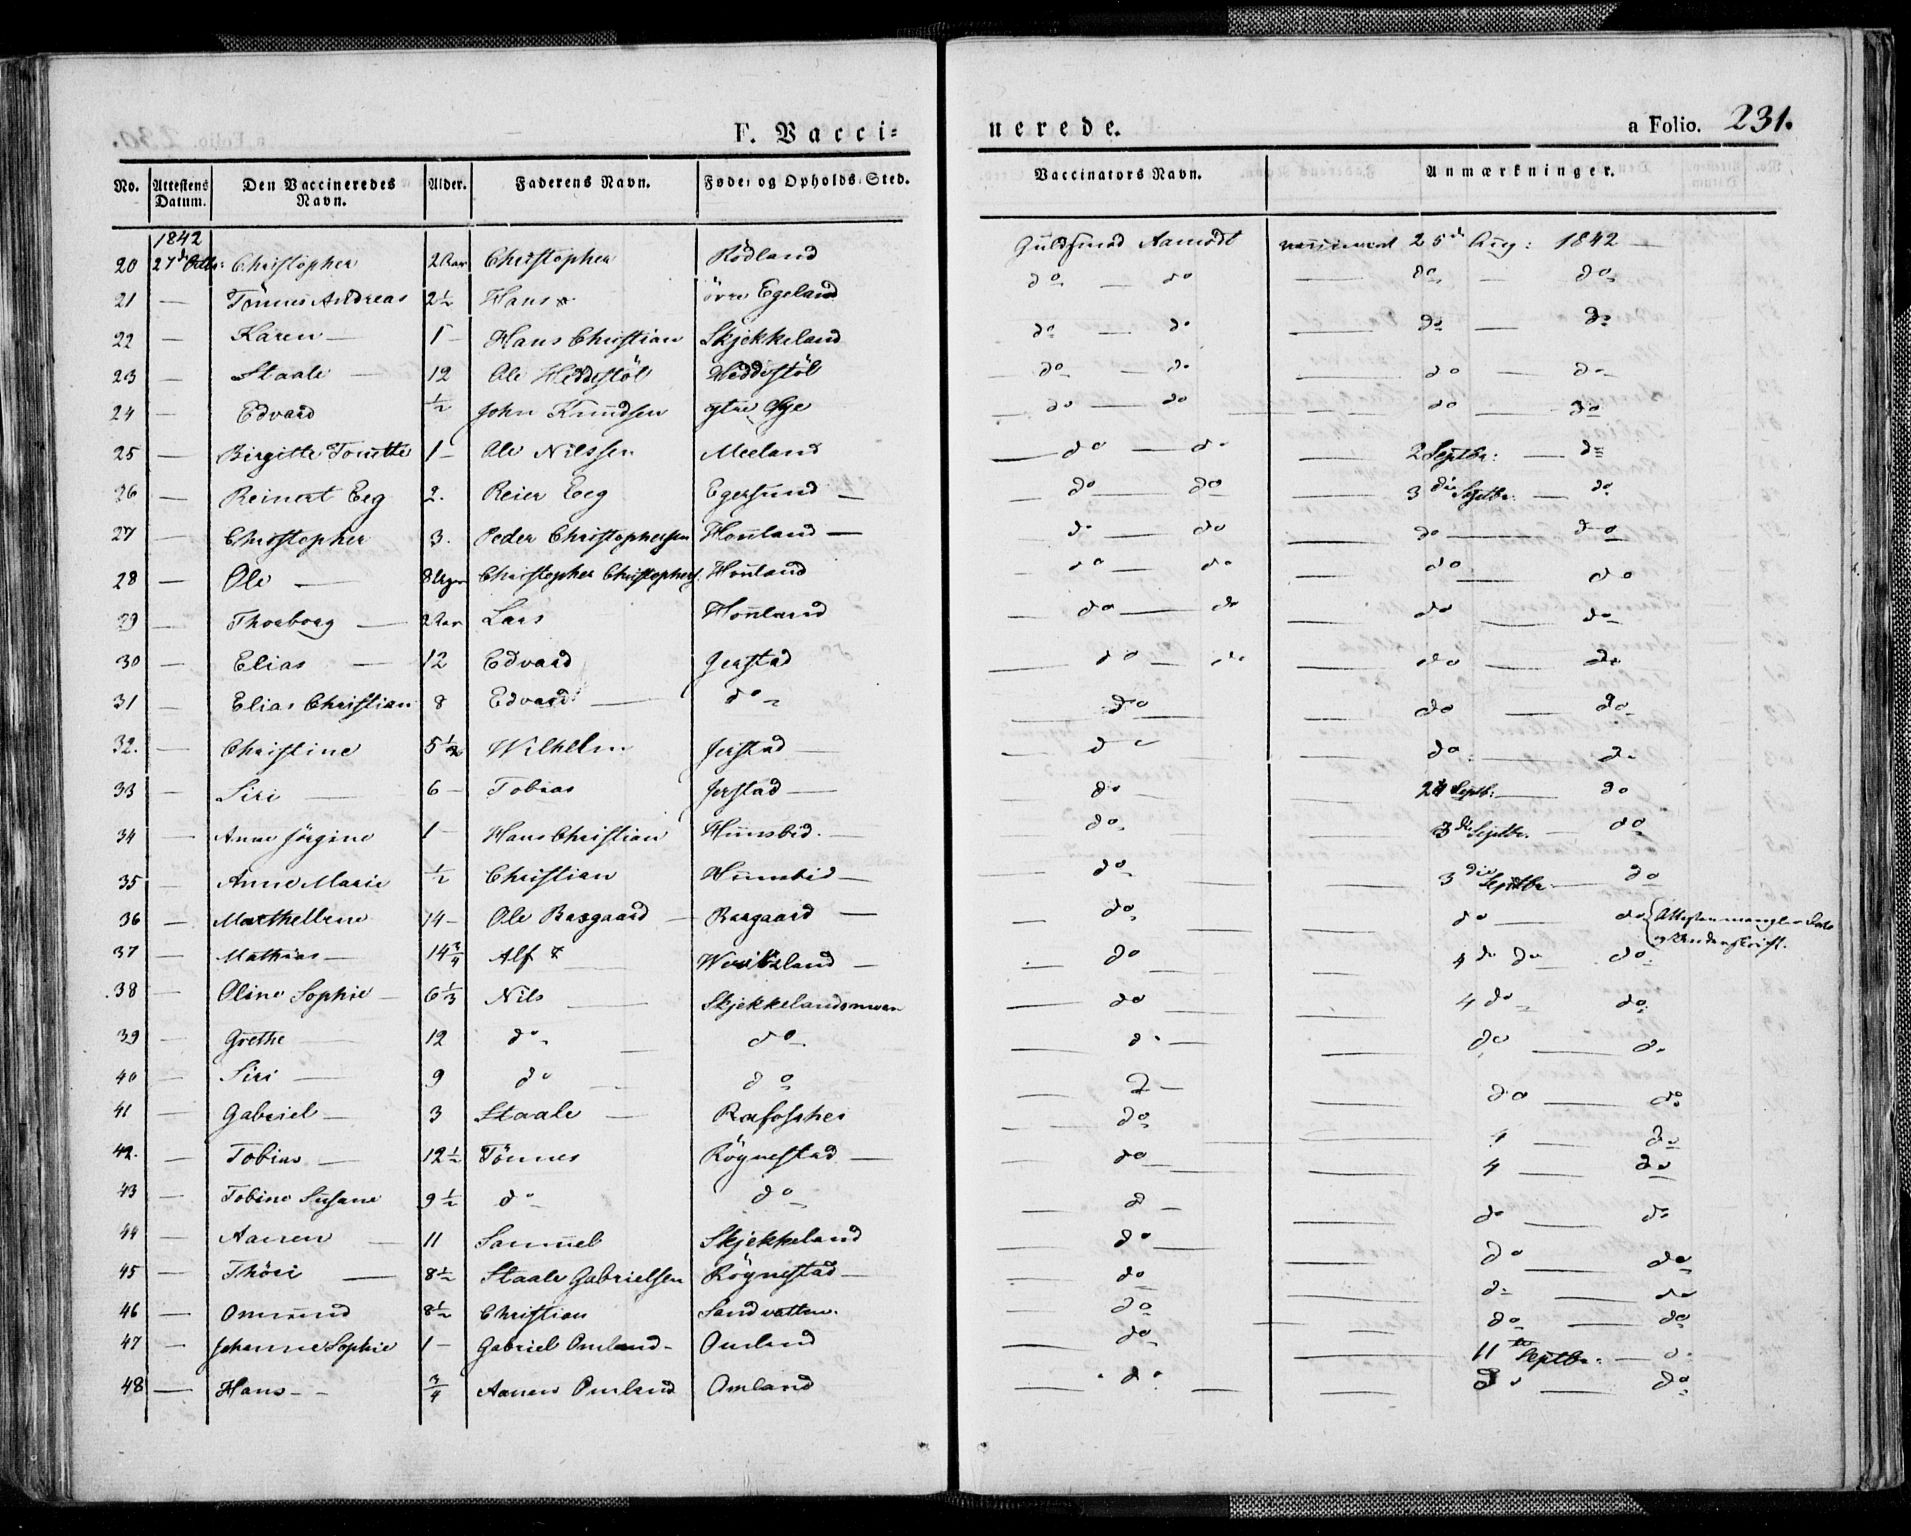 F. Vacci=
nerede.
a Folio. 231.
No. Attestens Datum. Den Vaccineredes Navn. Alder. Faderens Navn. Føde- og Opholds-Sted. Vaccinators Navn. Anmærkninger.
1842
20 27d Octbr: Christopher 2 Aar Christopher Rödland Guldsmed Aamodt vaccineret 25de Aug: 1842 —
21 — Tönnes Andreas 2½ Hans övre Egeland do — do — do — do
22 — Karen — 1 — Hans Christian Skjekkeland do — do — do — do
23 — Staale — 12 Ole Heddestöl Heddestöl — do — do — do — do
24 — Edvard ½ John Knudsen ytre Ege — do — do — do — do
25 — Birgitte Tonette 1 — Ole Nilssen Meeland — do — do — 2 Septbr: — do
26 — Reinert Eeg 2. Reier Eeg Egersund — — do — do — 3die Septbr. — do
27 — Christopher 3. Peder Christophersen Honnland — — do — do — do — do
28 — Ole — 8 Uger Christopher Christophers. Honland — do — do — do — do
29 — Thorborg — 2 Aar Lars Honland — do — do — do — do
30 — Elias — 12 Edvard Jerstad — do — do — do — do
31 — Elias Christian 8 Edvard — do — do — do — do
32. — Christine 5½ Wilhelm Jerstad — — do — do — do
33 — Siri — 6 — Tobias Jerstad — — do — 24 Septb: — do
34 — Anne Jörgine 1 — Hans Christian Hunsbed. — — do — 3die Septbr. — do
35 — Anne Marie ½ Christian Hunsbed — — do — 3die Septbr — do
36 — Marthe 14 — Ole Basgaard — Basgaard — — do — do — do Attesten mangler Dato
og Underskrift.
37 — Mathias — 14¾ Alf — — — do — 4de do — do
38 — Oline Sophie — 6⅓ Nils — Skjekkelandsmoen — do — 4 do — do
39 — Grethe — 12 do — do — do — do — do
40 — Siri — 9 do — do — do — do
41 — Gabriel — 3 Staale — Rafoshei — do — 4 — do
42. — Tobias — 12½ Tönnes Rögnestad — — do — 4 — do
43 — Tobine Susane 9½ do do — do — do — do
44 — Aanen — 11 Samuel Skjekkeland — do — do — do
45 — Thöri — 8½ Staale Gabrielsen Rögnestad — — do — do — do
46 — Ommund 8½ Christian Sandvatten. — do — do — do
47 — Johanne Sophie 1 — Gabriel Omland — Omland — do — 11te Septbr: — do
48 — Hans — ¾ Aanen Omland Omland — do — do — do